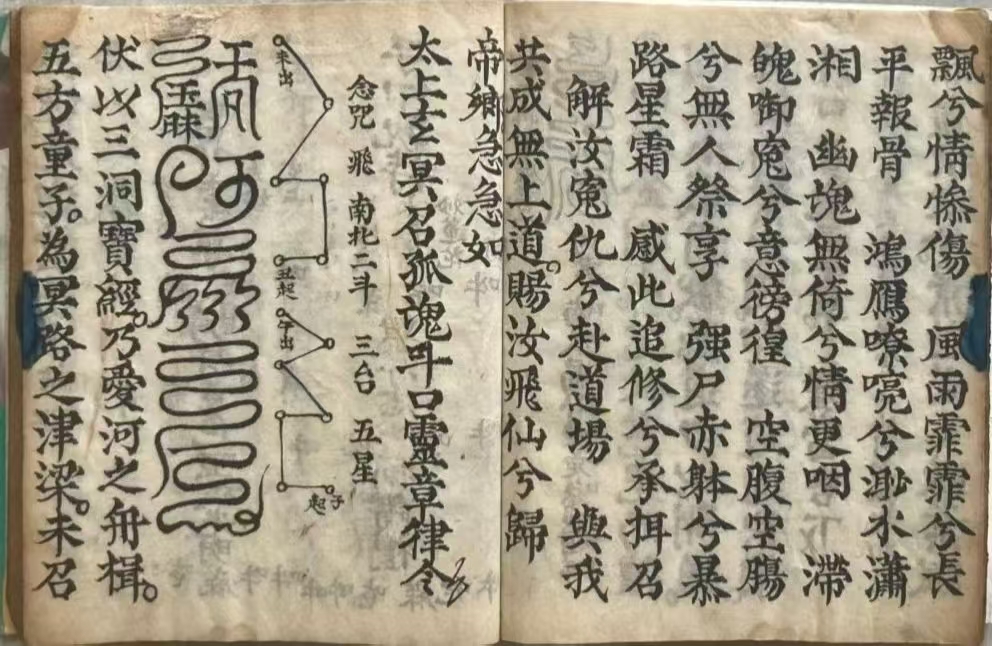 飄兮情慘傷　風雨霏霏兮長
平報骨　鴻鴈嘹喨兮渺水瀟
湘　幽塊無倚兮情更咽　滯
魄啣寃兮意徬徨　空腹空腸
兮無人祭享　强尸赤躰兮暴
路星霜　感此追修兮承拜召
解汝寃仇兮赴道場　與我
共成無上道。賜汝飛仙兮歸
帝鄉急急如
太上士冥召孤魂斗口靈章律令
念咒　飛　南北二斗　三台　五星
未出
丑起
午出
子起
伏以三洞寶經。乃愛河之舟楫。
五方童子。為冥路之津梁。未召